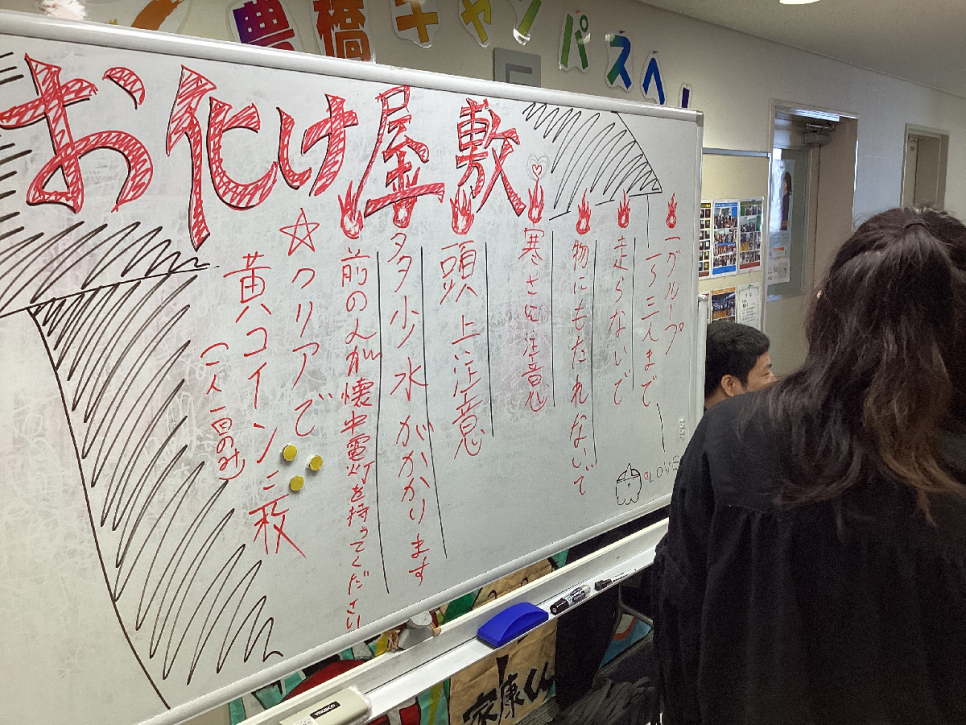 豊橋キャンパスへ!
お化け屋敷
一グループ
一~三人まで
走らないで
物にもたれないで
寒さに注意
頭上注意
多少水がかかります
前の人が懐中電灯を持ってください
☆クリアで
黄コイン三枚
(一人一回のみ)
家康くん